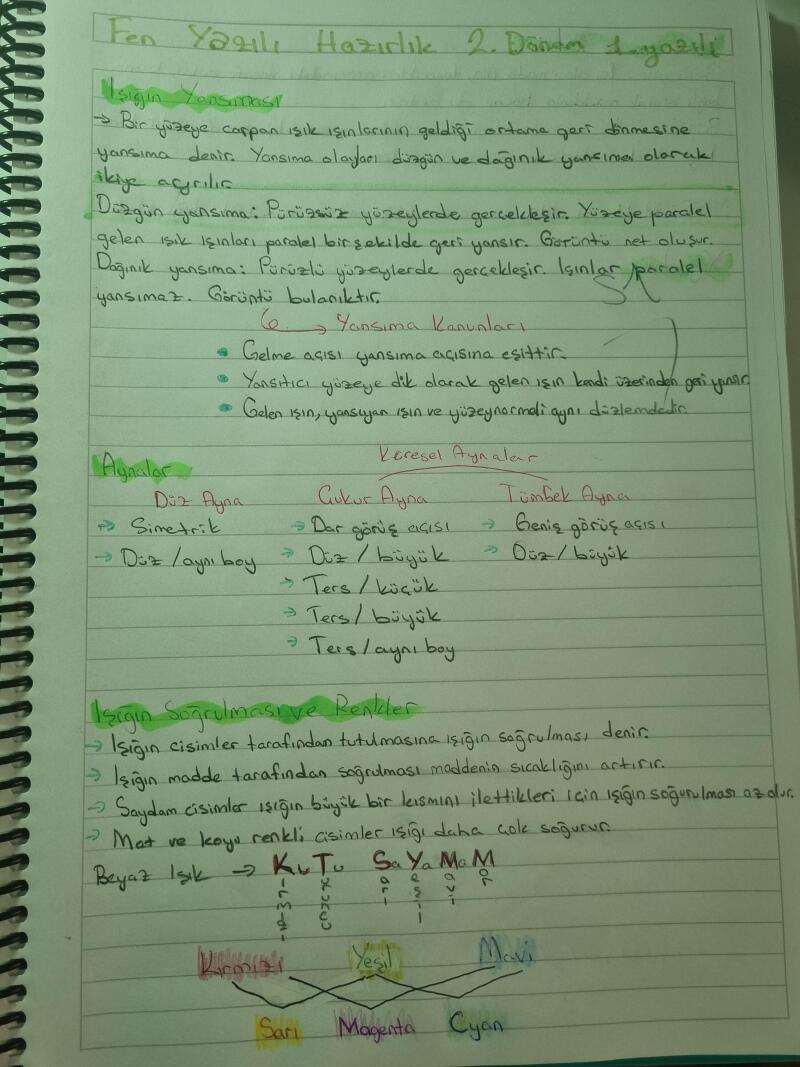 Fen Yazılı Hazırlık 2. Dönem 1. yazılı
Işığın Yansıması
→ Bir yüzeye çarpan ışık ışınlarının geldiği ortama geri dönmesine
yansıma denir. Yansıma olayları düzgün ve dağınık yansıma olarak
ikiye ayrılır.
Düzgün yansıma: Pürüzsüz yüzeylerde gerçekleşir. Yüzeye paralel
gelen ışık ışınları paralel bir şekilde geri yansır. Görüntü net oluşur.
Dağınık yansıma: Pürüzlü yüzeylerde gerçekleşir. Işınlar paralel
yansımaz. Görüntü bulanıktır.
→ Yansıma Kanunları
• Gelme açısı yansıma açısına eşittir.
• Yansıtıcı yüzeye dik olarak gelen ışın kendi üzerinden geri yansır.
• Gelen ışın, yansıyan ışın ve yüzey normali aynı düzlemdedir.
Aynalar
Küresel Aynalar
Düz Ayna Çukur Ayna Tümsek Ayna
→ Simetrik → Dar görüş açısı → Geniş görüş açısı
→ Düz / aynı boy → Düz / büyük → Düz / büyük
→ Ters / küçük
→ Ters / büyük
→ Ters / aynı boy
Işığın Soğrulması ve Renkler
→ Işığın cisimler tarafından tutulmasına ışığın soğrulması denir.
→ Işığın madde tarafından soğrulması maddenin sıcaklığını artırır.
→ Saydam cisimler ışığın büyük bir kısmını ilettikleri için ışığın soğurulması az olur.
→ Mat ve koyu renkli cisimler ışığı daha çok soğurur.
Beyaz Işık → Kı Tu Sa Ya Ma M
Kırmızı Turuncu Sarı Yeşil Mavi Mor
Kırmızı Yeşil Mavi
Sarı Magenta Cyan